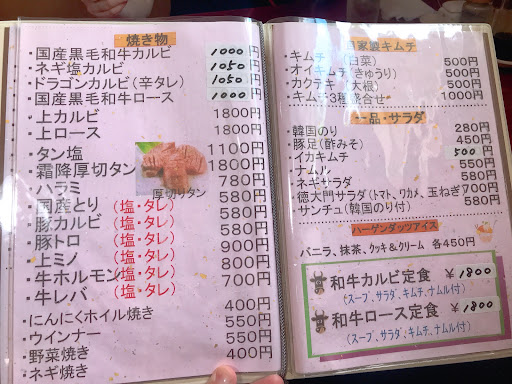 焼き物
・国産黒毛和牛カルビ 1000円
・ネギ塩カルビ 1050円
・ドラゴンカルビ(辛タレ) 1050円
・国産黒毛和牛ロース 1000円
・上カルビ 1800円
・上ロース 1800円
・タン塩 1100円
・霜降厚切タン 1800円
厚切りタン
・ハラミ 780円
・国産とり (塩・タレ) 580円
・豚カルビ (塩・タレ) 580円
・豚トロ (塩・タレ) 580円
・上ミノ 900円
・牛ホルモン (塩・タレ) 800円
・牛レバ (塩・タレ) 700円
・にんにくホイル焼き 400円
・ウインナー 550円
・野菜焼き 550円
・ネギ焼き 400円
自家製キムチ
・キムチ (白菜) 500円
・オイキムチ(きゅうり) 500円
・カクテキ (大根) 500円
・キムチ3種盛合せ 1000円
一品・サラダ
・韓国のり 280円
・豚足(酢みそ) 450円
・イカキムチ 500円
・ナムル 550円
・ネギサラダ 550円
・徳大門サラダ(トマト、ワカメ、玉ねぎ) 700円
・サンチュ(韓国のり付) 580円
ハーゲンダッツアイス
バニラ、抹茶、クッキー&クリーム 各450円
和牛カルビ定食 ¥1800
(スープ、サラダ、キムチ、ナムル付)
和牛ロース定食 ¥1800
(スープ、サラダ、キムチ、ナムル付)